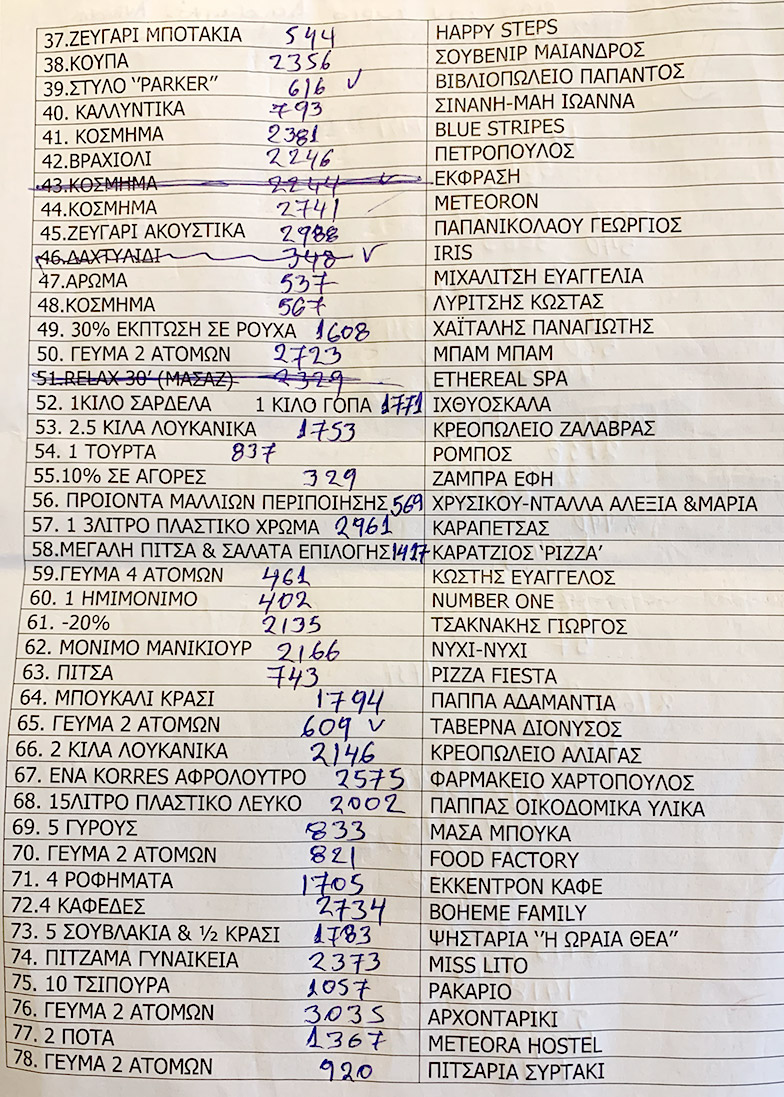 37.ΖΕΥΓΑΡΙ ΜΠΟΤΑΚΙΑ 544 HAPPY STEPS
38.ΚΟΥΠΑ 2356 ΣΟΥΒΕΝΙΡ ΜΑΙΑΝΔΡΟΣ
39.ΣΤΥΛΟ ‘’PARKER’’ 616 ✓ ΒΙΒΛΙΟΠΩΛΕΙΟ ΠΑΠΑΝΤΟΣ
40. ΚΑΛΛΥΝΤΙΚΑ 793 ΣΙΝΑΝΗ-ΜΑΗ ΙΩΑΝΝΑ
41. ΚΟΣΜΗΜΑ 2381 BLUE STRIPES
42.ΒΡΑΧΙΟΛΙ 2246 ΠΕΤΡΟΠΟΥΛΟΣ
43.ΚΟΣΜΗΜΑ 2244 ✓ ΕΚΦΡΑΣΗ
44.ΚΟΣΜΗΜΑ 2741 METEORON
45.ΖΕΥΓΑΡΙ ΑΚΟΥΣΤΙΚΑ 2988 ΠΑΠΑΝΙΚΟΛΑΟΥ ΓΕΩΡΓΙΟΣ
46.ΔΑΧΤΥΛΙΔΙ 348 ✓ IRIS
47.ΑΡΩΜΑ 537 ΜΙΧΑΛΙΤΣΗ ΕΥΑΓΓΕΛΙΑ
48.ΚΟΣΜΗΜΑ 567 ΛΥΡΙΤΣΗΣ ΚΩΣΤΑΣ
49. 30% ΕΚΠΤΩΣΗ ΣΕ ΡΟΥΧΑ 1608 ΧΑΪΤΑΛΗΣ ΠΑΝΑΓΙΩΤΗΣ
50. ΓΕΥΜΑ 2 ΑΤΟΜΩΝ 2723 ΜΠΑΜ ΜΠΑΜ
51.RELAX 30’ (ΜΑΣΑΖ) 2329 ETHEREAL SPA
52. 1ΚΙΛΟ ΣΑΡΔΕΛΑ 1 ΚΙΛΟ ΓΟΠΑ 1771 ΙΧΘΥΟΣΚΑΛΑ
53. 2.5 ΚΙΛΑ ΛΟΥΚΑΝΙΚΑ 1753 ΚΡΕΟΠΩΛΕΙΟ ΖΑΛΑΒΡΑΣ
54. 1 ΤΟΥΡΤΑ 837 ΡΟΜΠΟΣ
55.10% ΣΕ ΑΓΟΡΕΣ 329 ΖΑΜΠΡΑ ΕΦΗ
56. ΠΡΟΙΟΝΤΑ ΜΑΛΛΙΩΝ ΠΕΡΙΠΟΙΗΣΗΣ 569 ΧΡΥΣΙΚΟΥ-ΝΤΑΛΛΑ ΑΛΕΞΙΑ &ΜΑΡΙΑ
57. 1 3ΛΙΤΡΟ ΠΛΑΣΤΙΚΟ ΧΡΩΜΑ 2961 ΚΑΡΑΠΕΤΣΑΣ
58.ΜΕΓΑΛΗ ΠΙΤΣΑ & ΣΑΛΑΤΑ ΕΠΙΛΟΓΗΣ 1417 ΚΑΡΑΤΖΙΟΣ ‘PIZZA’
59.ΓΕΥΜΑ 4 ΑΤΟΜΩΝ 461 ΚΩΣΤΗΣ ΕΥΑΓΓΕΛΟΣ
60. 1 ΗΜΙΜΟΝΙΜΟ 402 NUMBER ONE
61. -20% 2135 ΤΣΑΚΝΑΚΗΣ ΓΙΩΡΓΟΣ
62. ΜΟΝΙΜΟ ΜΑΝΙΚΙΟΥΡ 2166 ΝΥΧΙ-ΝΥΧΙ
63. ΠΙΤΣΑ 743 PIZZA FIESTA
64. ΜΠΟΥΚΑΛΙ ΚΡΑΣΙ 1794 ΠΑΠΠΑ ΑΔΑΜΑΝΤΙΑ
65. ΓΕΥΜΑ 2 ΑΤΟΜΩΝ 609 ✓ ΤΑΒΕΡΝΑ ΔΙΟΝΥΣΟΣ
66. 2 ΚΙΛΑ ΛΟΥΚΑΝΙΚΑ 2146 ΚΡΕΟΠΩΛΕΙΟ ΑΛΙΑΓΑΣ
67. ΕΝΑ KORRES ΑΦΡΟΛΟΥΤΡΟ 2575 ΦΑΡΜΑΚΕΙΟ ΧΑΡΤΟΠΟΥΛΟΣ
68. 15ΛΙΤΡΟ ΠΛΑΣΤΙΚΟ ΛΕΥΚΟ 2002 ΠΑΠΠΑΣ ΟΙΚΟΔΟΜΙΚΑ ΥΛΙΚΑ
69. 5 ΓΥΡΟΥΣ 833 ΜΑΣΑ ΜΠΟΥΚΑ
70. ΓΕΥΜΑ 2 ΑΤΟΜΩΝ 821 FOOD FACTORY
71. 4 ΡΟΦΗΜΑΤΑ 1705 ΕΚΚΕΝΤΡΟΝ ΚΑΦΕ
72.4 ΚΑΦΕΔΕΣ 2734 BOHEME FAMILY
73. 5 ΣΟΥΒΛΑΚΙΑ & ½ ΚΡΑΣΙ 1783 ΨΗΣΤΑΡΙΑ ‘’Η ΩΡΑΙΑ ΘΕΑ’’
74. ΠΙΤΖΑΜΑ ΓΥΝΑΙΚΕΙΑ 2373 MISS LITO
75. 10 ΤΣΙΠΟΥΡΑ 1057 ΡΑΚΑΡΙΟ
76. ΓΕΥΜΑ 2 ΑΤΟΜΩΝ 3035 ΑΡΧΟΝΤΑΡΙΚΙ
77. 2 ΠΟΤΑ 1367 METEORA HOSTEL
78. ΓΕΥΜΑ 2 ΑΤΟΜΩΝ 920 ΠΙΤΣΑΡΙΑ ΣΥΡΤΑΚΙ